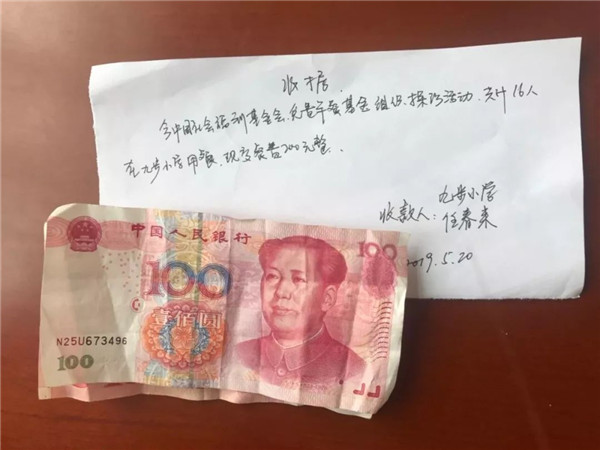 收据
今中国社会福利基金会,免费午餐基金 组织,探访活动,共计16人
在九步小学用餐,现交餐费200元整.
九步小学
收款人:任春来
2019.5.20
中国人民银行
100
100
壹佰圆
N25U673496
100